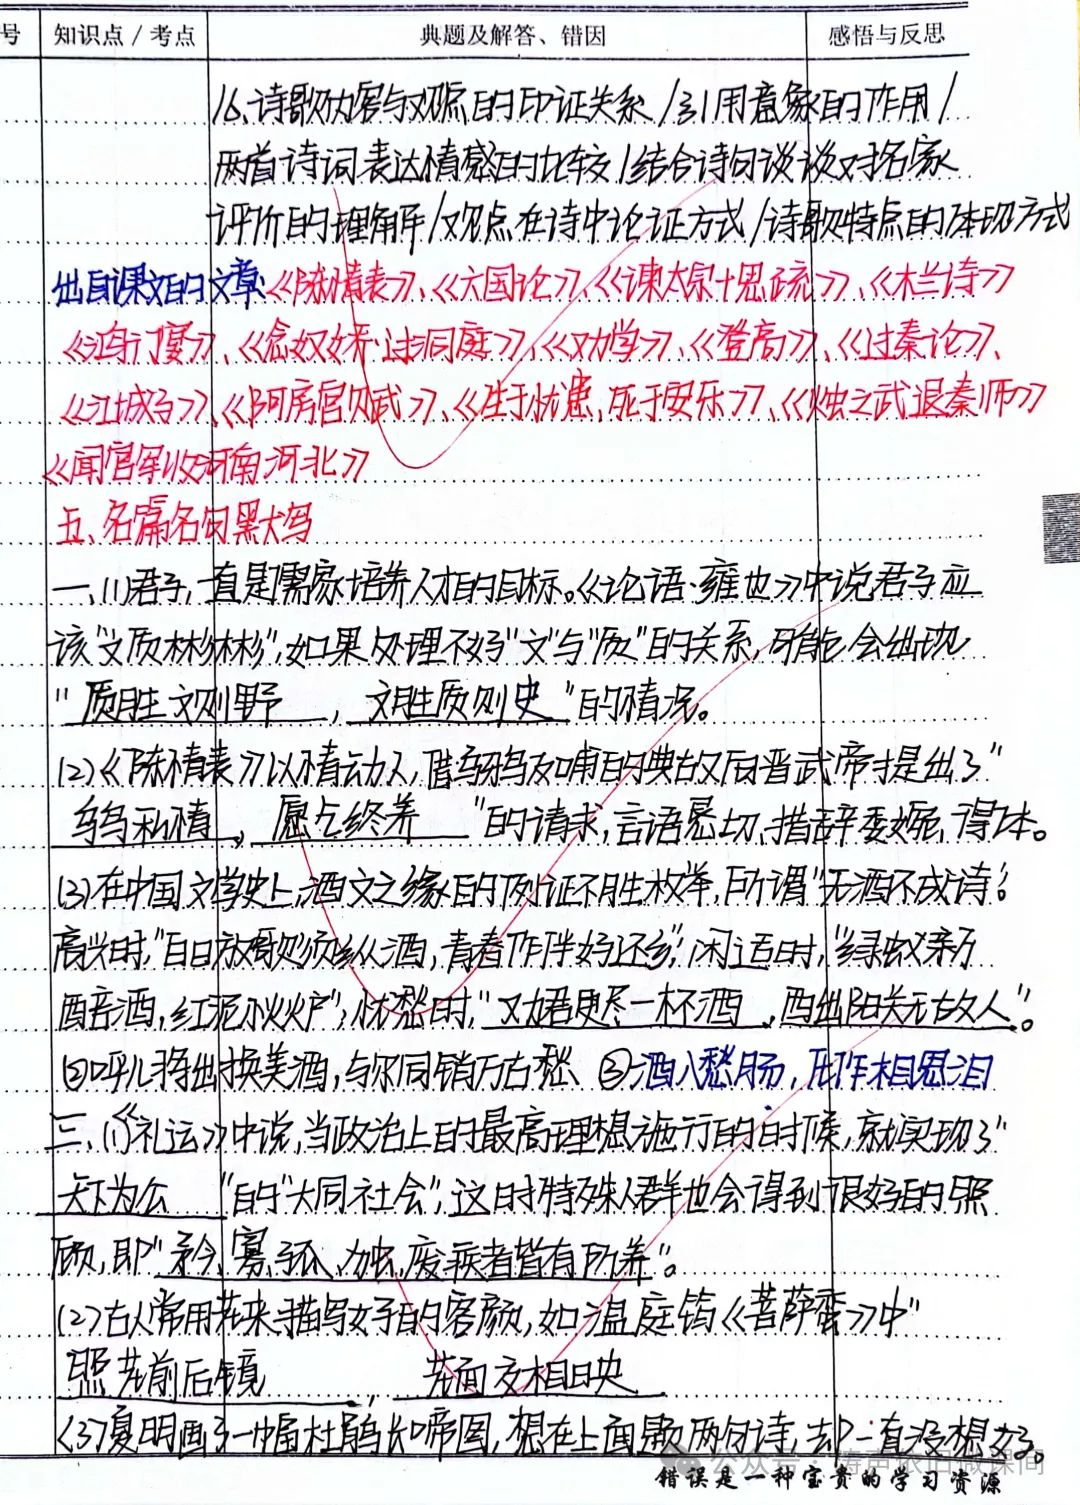 号 知识点/考点 典题及解答、错因 感悟与反思
16、诗歌内容与观点的印证关系/引用意象的作用/
两首诗词表达情感的比较/结合诗句谈谈对名家
评价的理解/观点在诗中论证方式/诗歌特点的体现方式
出自课文的文章:《陈情表》、《六国论》、《谏太宗十思疏》、《木兰诗》
《鸿门宴》、《念奴娇·过洞庭》、《劝学》、《登高》、《过秦论》、
《江城子》、《阿房宫赋》、《生于忧患,死于安乐》、《烛之武退秦师》
《闻官军收河南河北》
五、名篇名句默写
一、(1)君子,一直是儒家培养人才的目标。《论语·雍也》中说君子应
该"文质彬彬",如果处理不好"文"与"质"的关系,可能会出现
"质胜文则野,文胜质则史"的情况。
(2)《陈情表》以情动人,借乌鸦反哺的典故向晋武帝提出了"
乌鸟私情,愿乞终养"的请求,言语恳切,措辞委婉,得体。
(3)在中国文学史上,酒文之缘的例证不胜枚举,所谓"无酒不成诗":
高兴时,"白日放歌须纵酒,青春作伴好还乡";闲适时,"绿蚁新
醅酒,红泥小火炉";忧愁时,"劝君更尽一杯酒,西出阳关无故人"。
②呼儿将出换美酒,与尔同销万古愁 ③酒入愁肠,化作相思泪
三、(1)《礼运》中说,当政治上的最高理想施行的时候,就实现了"
天下为公"的"大同社会",这时特殊人群也会得到很好的照
顾,即"矜、寡、孤、独、废疾者皆有所养"。
(2)古人常用花来描写女子的容颜,如温庭筠《菩萨蛮》中"
照花前后镜,花面交相映
(3)夏明画了一幅杜鹃长啼图,想在上面题两句诗,却一直没想好。
公众号·涛声依旧微课间
错误是一种宝贵的学习资源